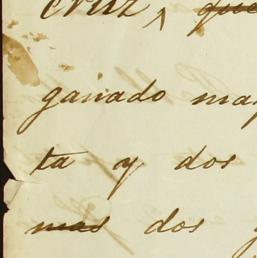 cruz, que
ganado may
ta y dos
mas dos